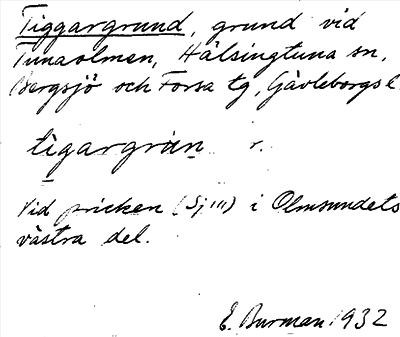 Tiggargrund, grund vid
Tunaolmen, Hälsingtuna sn,
Bergsjö och Forsa tg, Gävleborgs l.
tigargrün r.
Vid pricken (Sj III) i Olmsundets
västra del.
E. Burman 1932